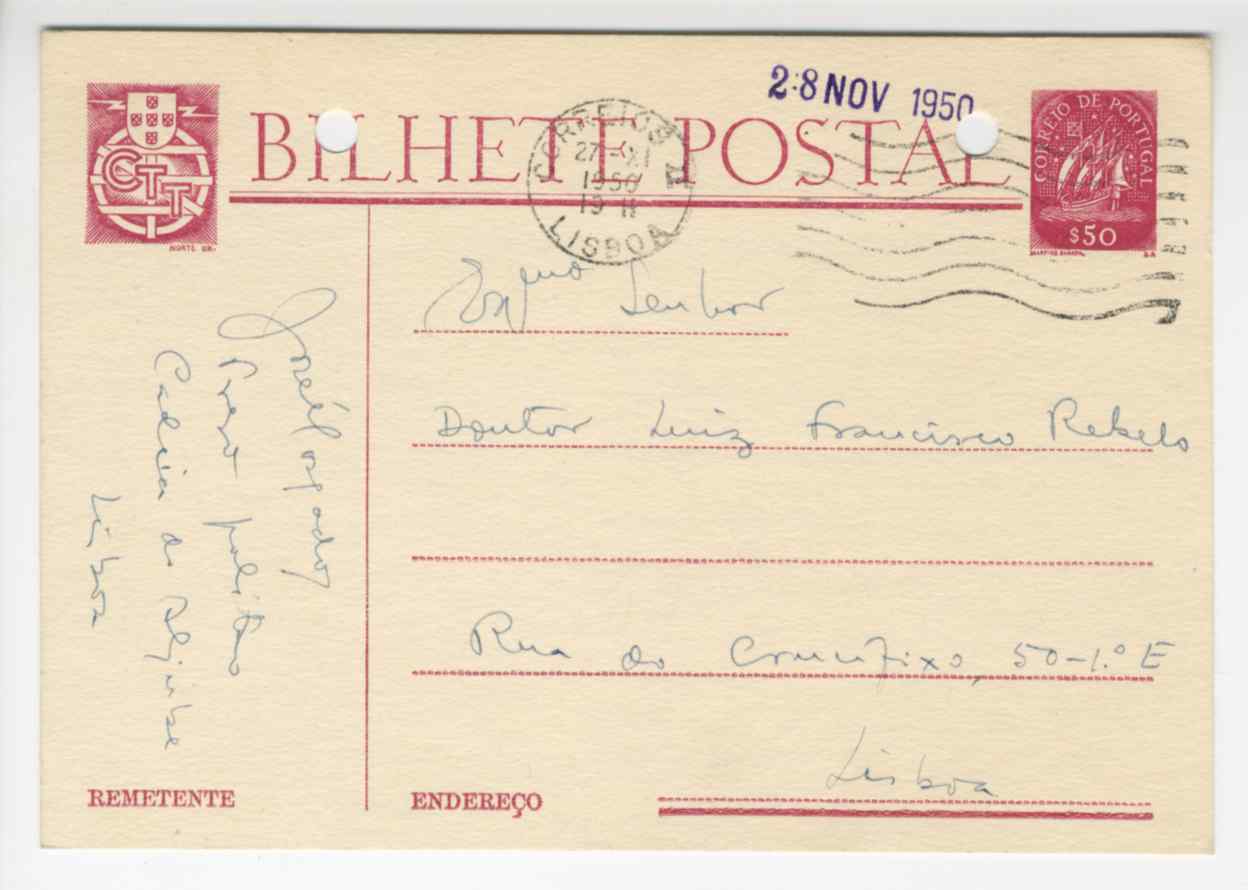 CTT
NORTE GR.
BILHETE POSTAL
CORREIOS
27-XI
1950
19 H
LISBOA
28 NOV 1950
CORREIO DE PORTUGAL
$50
Exmo Senhor
Doutor Luiz Francisco Rebelo
Rua do Crucifixo, 50-1.º E
Lisboa
ENDEREÇO
José
Preso político
Cadeia do Aljube
Lisboa
REMETENTE